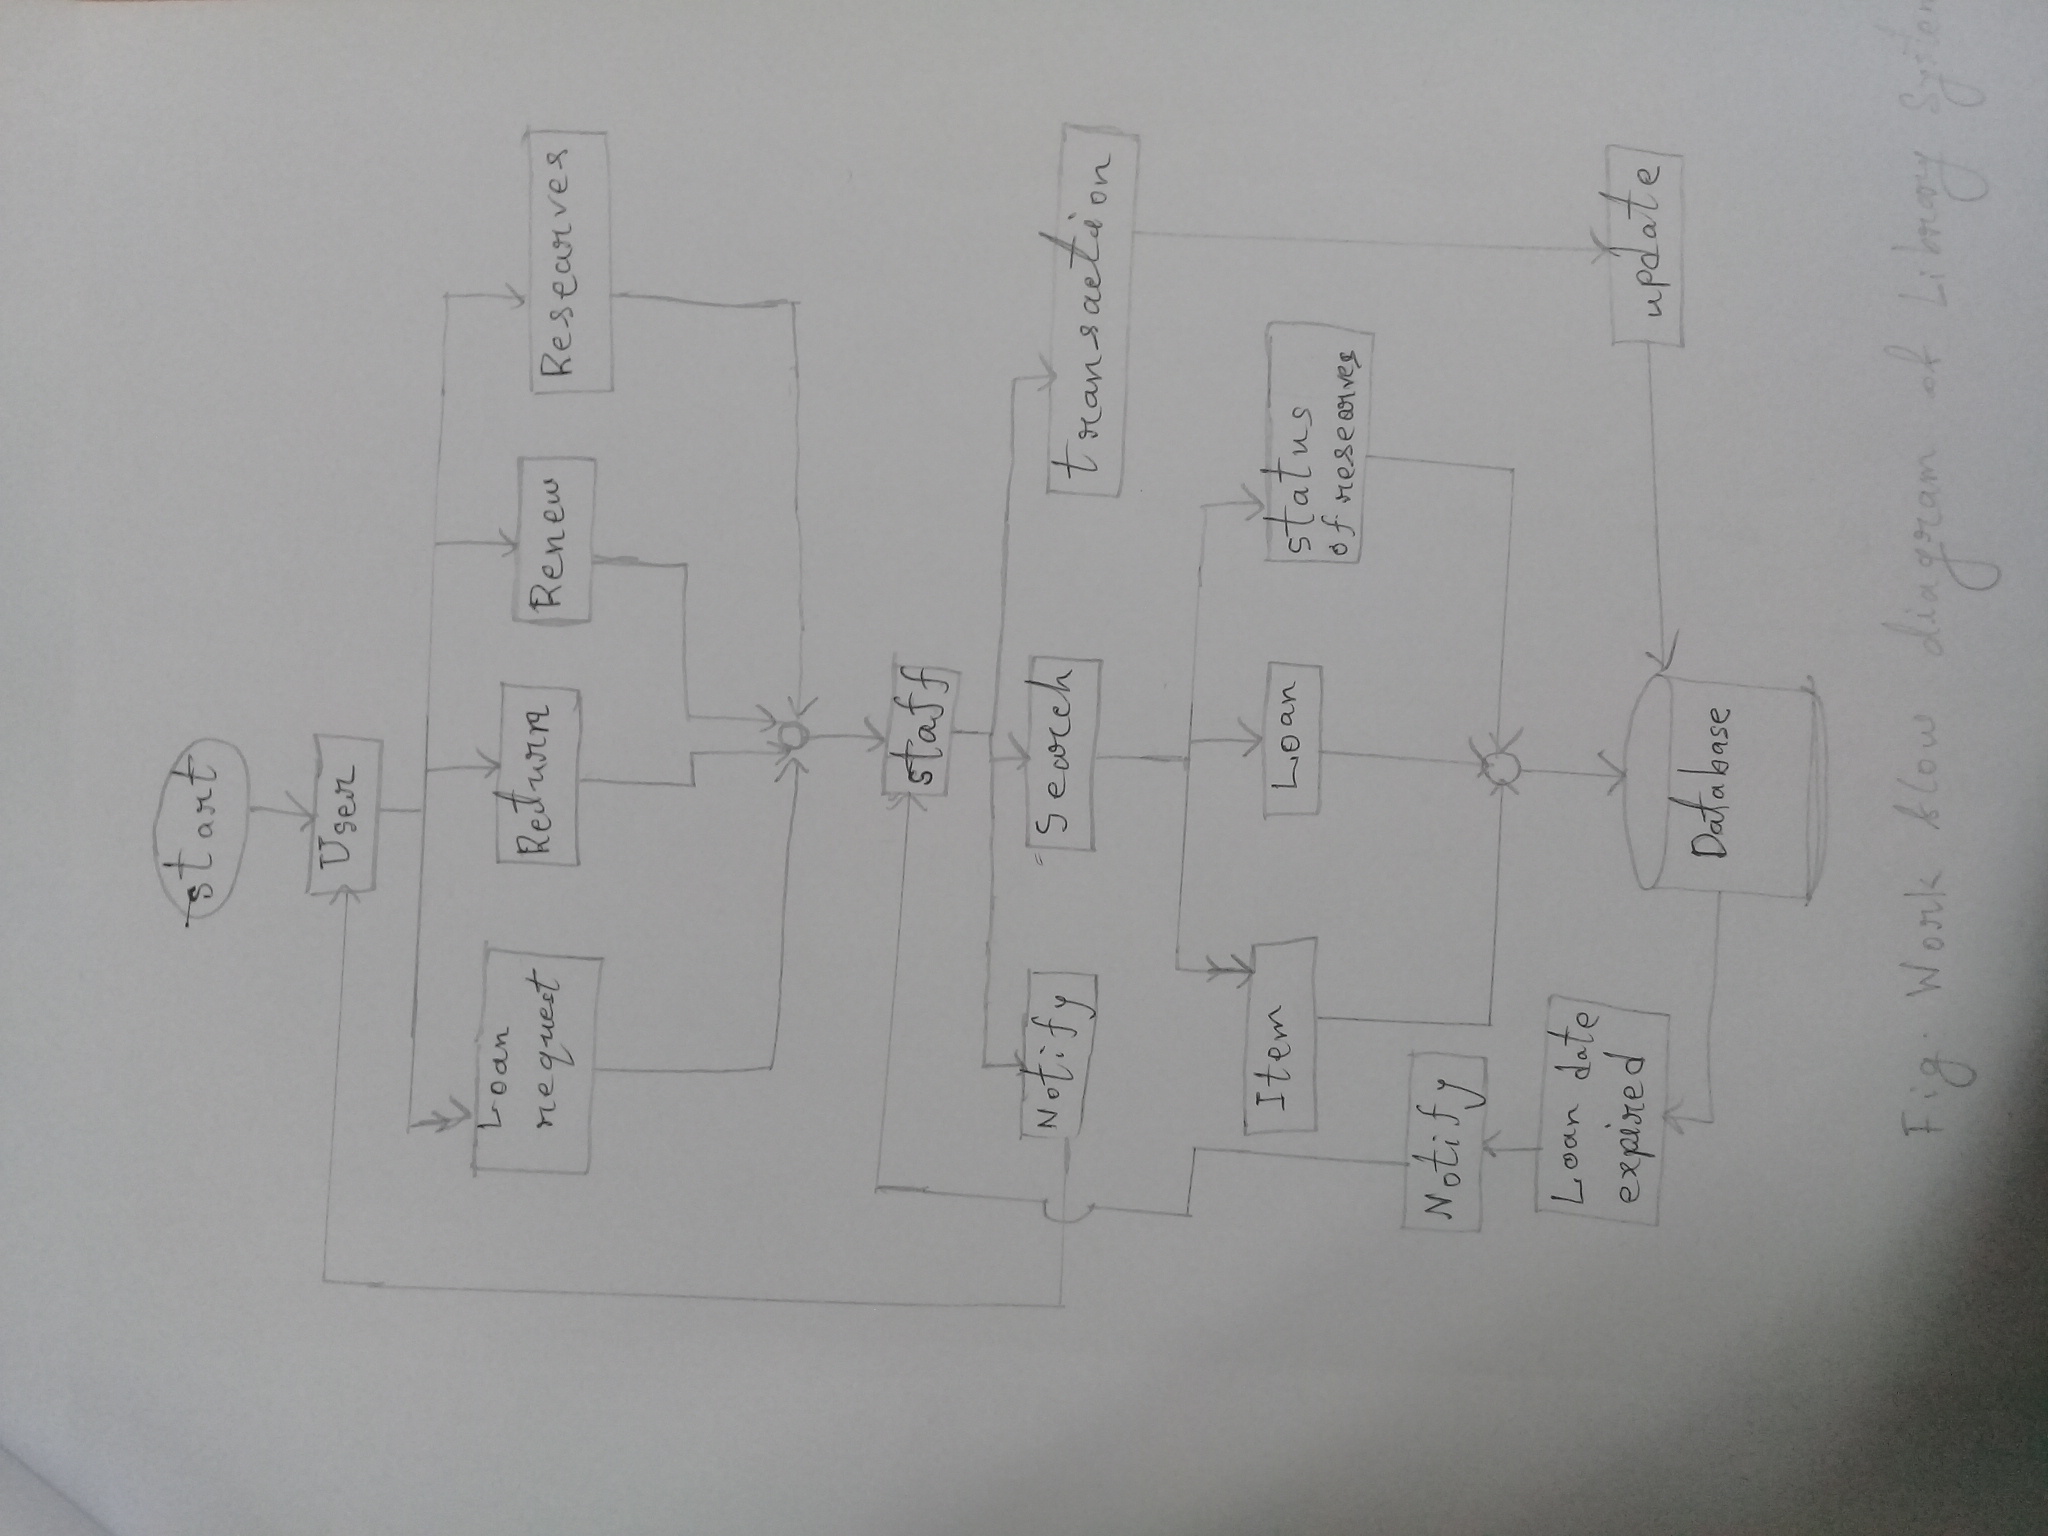 start
User
Loan
request
Return
Renew
Researves
staff
Notify
Search
transaction
Item
Loan
status
of researves
Notify
Loan date
expired
update
Database
Fig. Work flow diagram of Library System